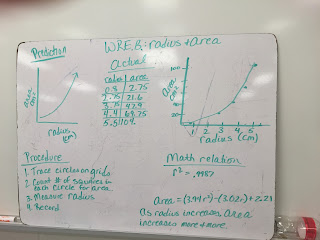 W.R.E. 6: radius + area
Prediction
area
cm²
radius
(cm)
Actual
radius | area
0.8 | 2.75
2.75 | 21.6
3.75 | 42.9
4.4 | 68.75
5.5 | 104
100
20
area
cm²
1 2 3 4 5
radius (cm)
Procedure
1. Trace circles on grids
2. Count # of squares in
each circle for area
3. Measure radius
4. Record
Math relation
r² = .9987
area = (3.94 r²) - (3.02r) + 2.21
as radius increases, area
increases more + more